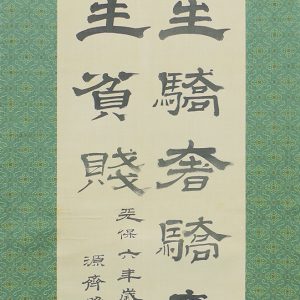 生驕奢驕
生貧賤
天保六年歳
源齊